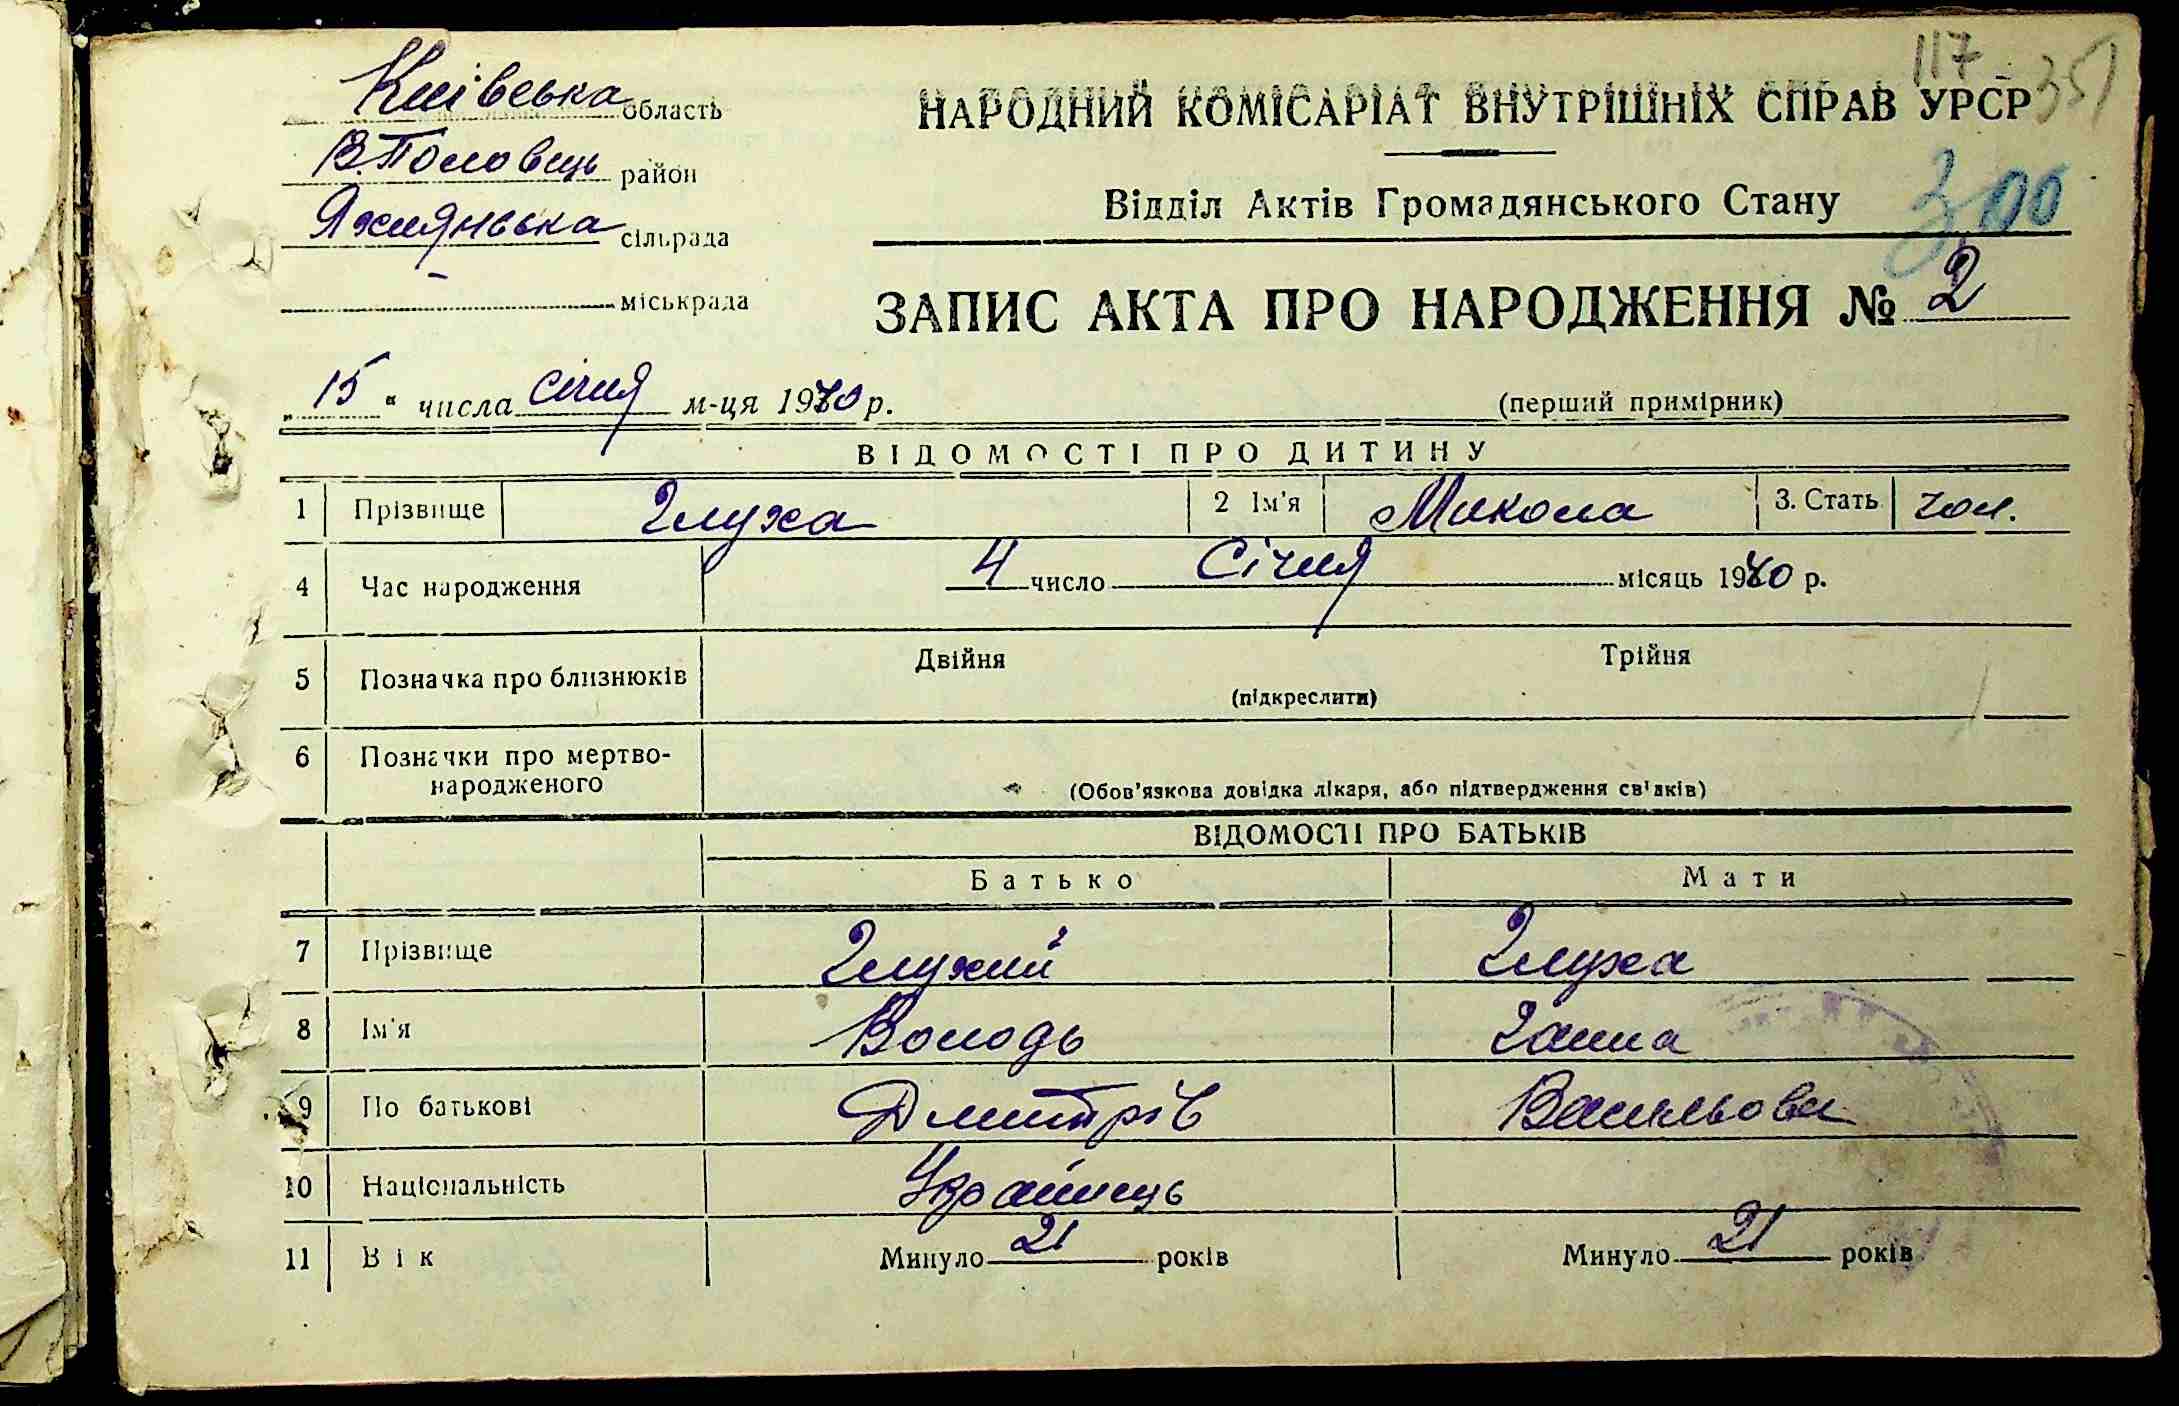 117 351
Київська область
В.Половець район
Яхнянська сільрада
- міськрада
НАРОДНИЙ КОМІСАРІАТ ВНУТРІШНІХ СПРАВ УРСР
Відділ Актів Громадянського Стану
3,00
ЗАПИС АКТА ПРО НАРОДЖЕННЯ № 2
„15“ числа січня м-ця 1940 р.
(перший примірник)
ВІДОМОСТІ ПРО ДИТИНУ
1 Прізвище Глуха 2 Ім'я Микола 3. Стать чол.
4 Час народження 4 число Січня місяць 1940 р.
5 Позначка про близнюків Двійня Трійня
(підкреслити)
6 Позначки про мертво-
народженого (Обов'язкова довідка лікаря, або підтвердження свідків)
ВІДОМОСТІ ПРО БАТЬКІВ
Батько Мати
7 Прізвище Глухий Глуха
8 Ім'я Володь Ганна
9 По батькові Дмитрів Васильова
10 Національність Українець
11 Вік Минуло 21 років Минуло 21 років